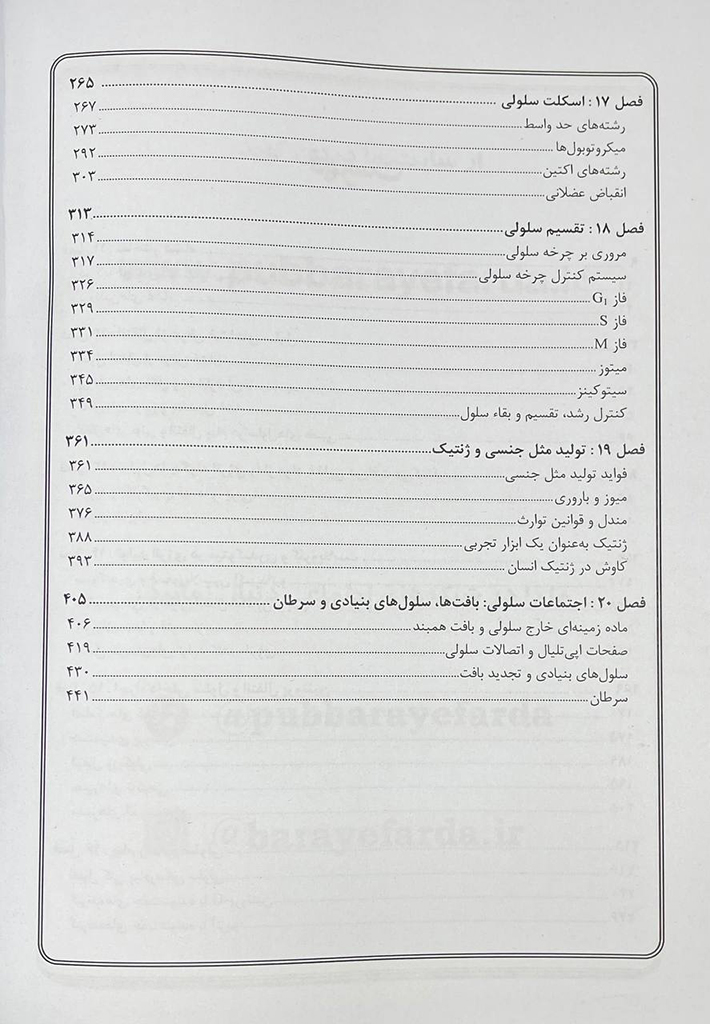 فصل ۱۷: اسکلت سلولی ........ ۲۶۵
رشته‌های حد واسط ........ ۲۶۷
میکروتوبول‌ها ........ ۲۷۳
رشته‌های اکتین ........ ۲۹۲
انقباض عضلانی ........ ۳۰۳
فصل ۱۸: تقسیم سلولی ........ ۳۱۳
مروری بر چرخه سلولی ........ ۳۱۴
سیستم کنترل چرخه سلولی ........ ۳۱۷
فاز G₁ ........ ۳۲۶
فاز S ........ ۳۲۹
فاز M ........ ۳۳۱
میتوز ........ ۳۳۴
سیتوکینز ........ ۳۴۵
کنترل رشد، تقسیم و بقاء سلول ........ ۳۴۹
فصل ۱۹: تولید مثل جنسی و ژنتیک ........ ۳۶۱
فواید تولید مثل جنسی ........ ۳۶۱
میوز و باروری ........ ۳۶۵
مندل و قوانین توارث ........ ۳۷۶
ژنتیک به‌عنوان یک ابزار تجربی ........ ۳۸۸
کاوش در ژنتیک انسان ........ ۳۹۳
فصل ۲۰: اجتماعات سلولی: بافت‌ها، سلول‌های بنیادی و سرطان ........ ۴۰۵
ماده زمینه‌ای خارج سلولی و بافت همبند ........ ۴۰۶
صفحات اپی‌تلیال و اتصالات سلولی ........ ۴۱۹
سلول‌های بنیادی و تجدید بافت ........ ۴۳۰
سرطان ........ ۴۴۱
@pubbarayefarda
@barayefarda.ir